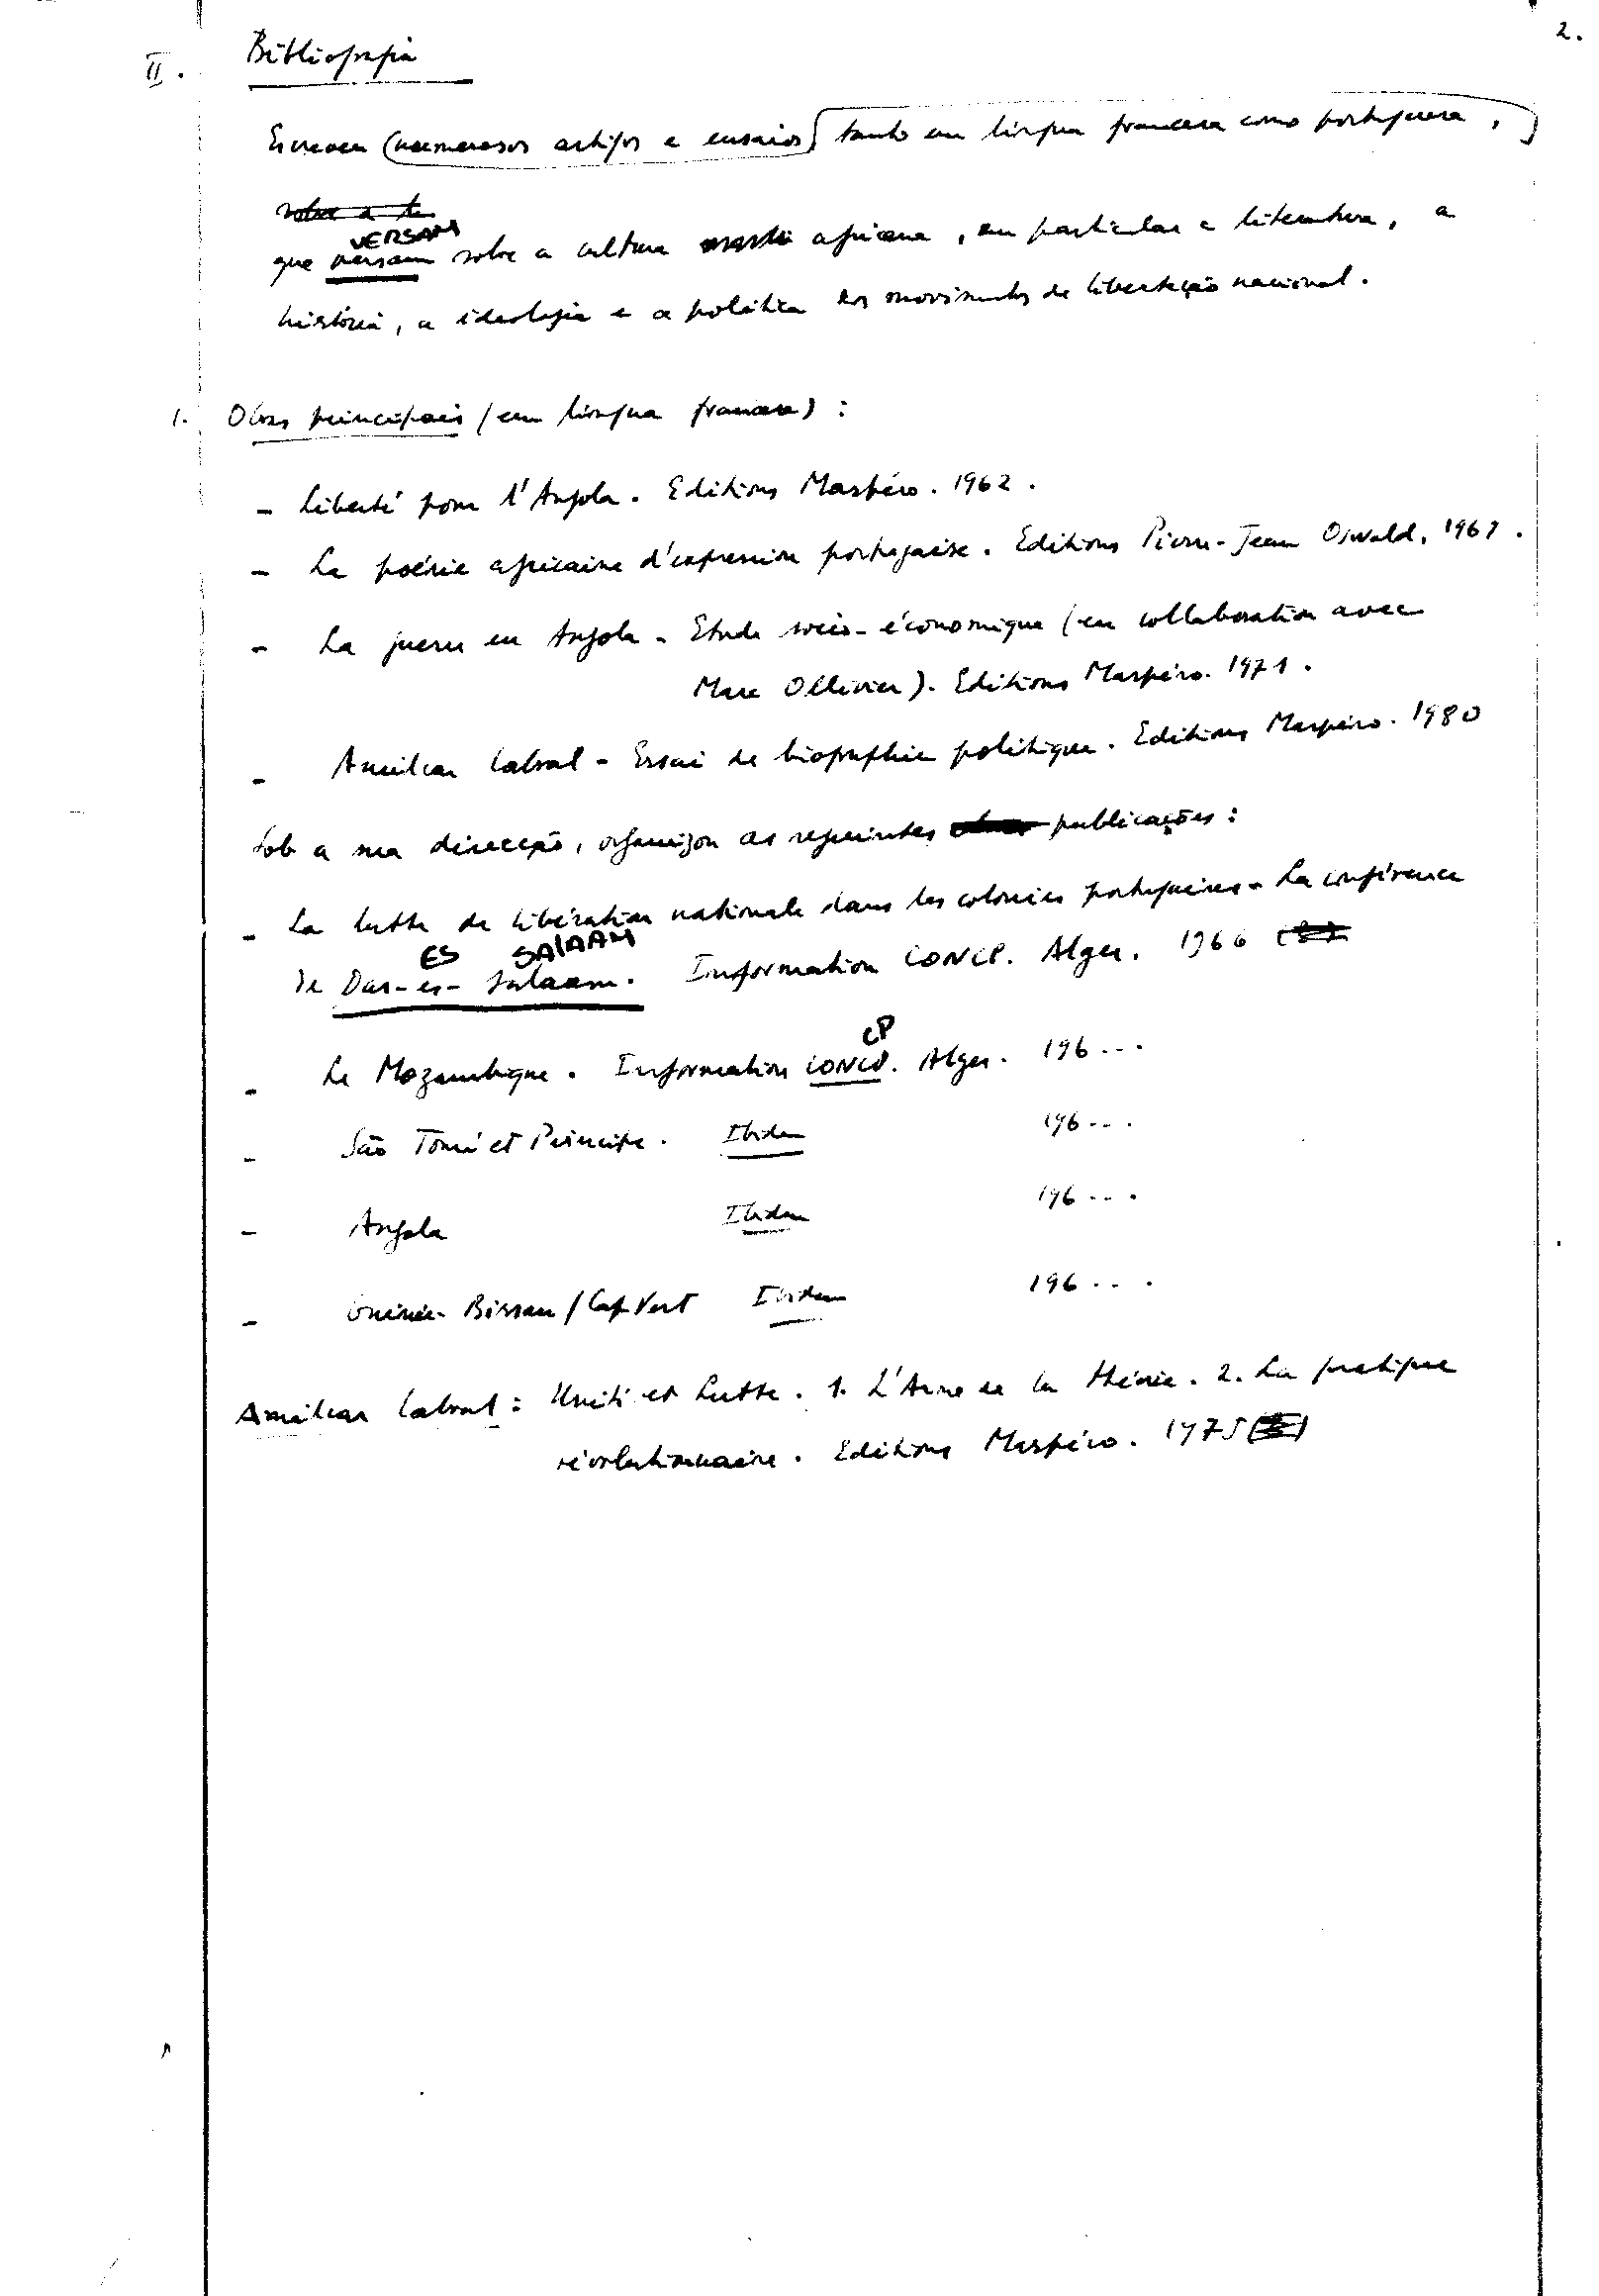 2.
II. Bibliografia
Escreveu (numerosos artigos e ensaios) tanto em língua francesa como portuguesa,
sobre a
VERSAM
que versam sobre a cultura africana, em particular a literatura, a
história, a ideologia e a política dos movimentos de libertação nacional.
1. Obras principais (em língua francesa) :
- Liberté pour l'Angola. Editions Maspéro. 1962.
- La poésie africaine d'expression portugaise. Editions Pierre-Jean Oswald. 1969.
- La guerre en Angola - Etude socio-économique (en collaboration avec
Marc Ollivier). Editions Maspéro. 1971.
- Amilcar Cabral - Essai de biographie politique. Editions Maspéro. 1980
Sob a sua direcção, organizou as seguintes publicações :
- La lutte de libération nationale dans les colonies portugaises - La conférence
ES SALAAM
de Dar-es-Salaam. Information CONCP. Alger. 1966
CP
- Le Mozambique. Information CONCP. Alger. 196...
- São Tomé et Principe. Ibidem 196...
- Angola Ibidem 196...
- Guinée-Bissau/Cap Vert Ibidem 196...
Amilcar Cabral : Unité et Lutte. 1. L'Arme de la théorie. 2. La pratique
révolutionnaire. Editions Maspéro. 1975